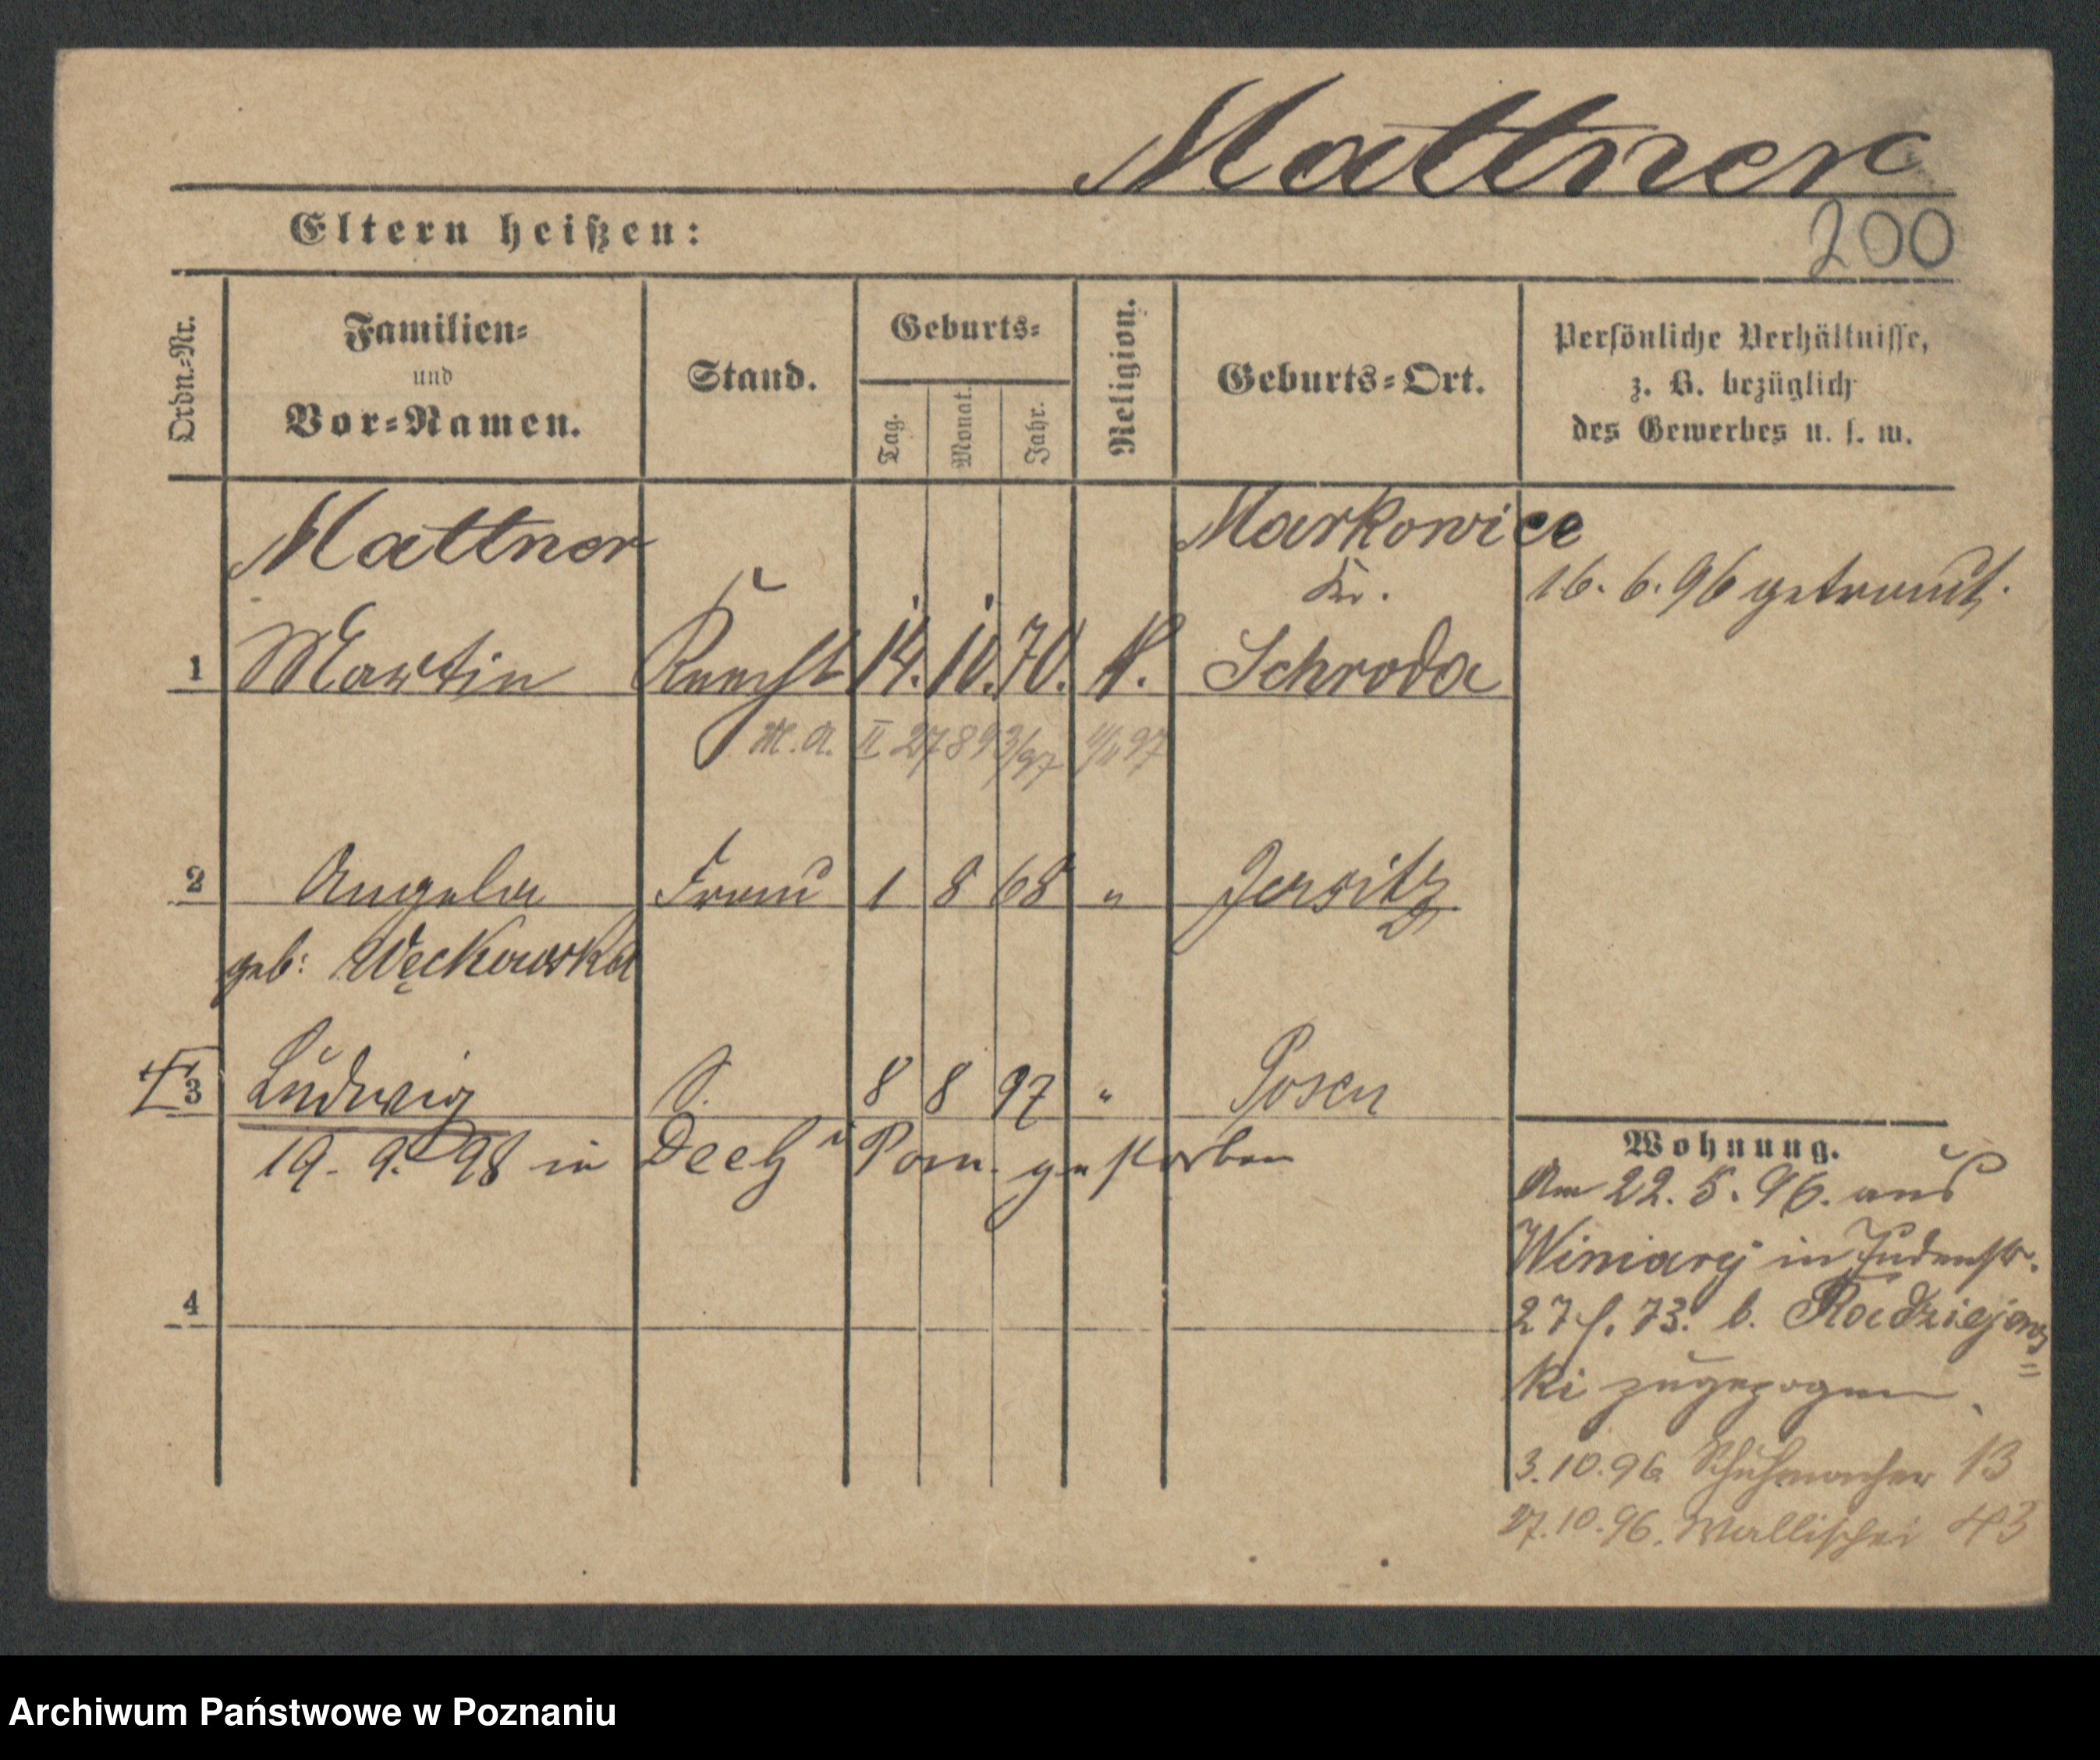 Mattner
Eltern heißen:
200
Ordn.-Nr.
Familien-
und
Vor-Namen.
Stand.
Geburts-
Tag.
Monat.
Jahr.
Religion.
Geburts-Ort.
Persönliche Verhältnisse,
z. B. bezüglich
des Gewerbes u. s. w.
Mattner Markowice
Kr. 16. 6. 96 getraut.
1 Martin Knecht 14. 10. 70. K. Schroda
M. A. II 2789 3/97
2 Angela Frau 1 8 68 " Jersitz
geb: Węckowska
3 Ludwig S. 8 8 97 " Posen
19. 9. 98 in Deetz i Pom. gestorben
4
Wohnung.
Am 22. 5. 96. aus
Winiary in Judenstr.
27 f. 73. b. Radziejews=
ki zugezogen
3.10.96 Schuhmacher 13
27.10.96. Wallischei 43
Archiwum Państwowe w Poznaniu